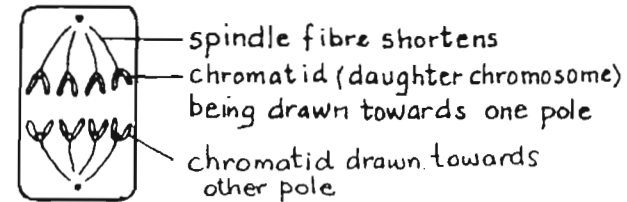 spindle fibre shortens
chromatid (daughter chromosome)
being drawn towards one pole
chromatid drawn towards
other pole